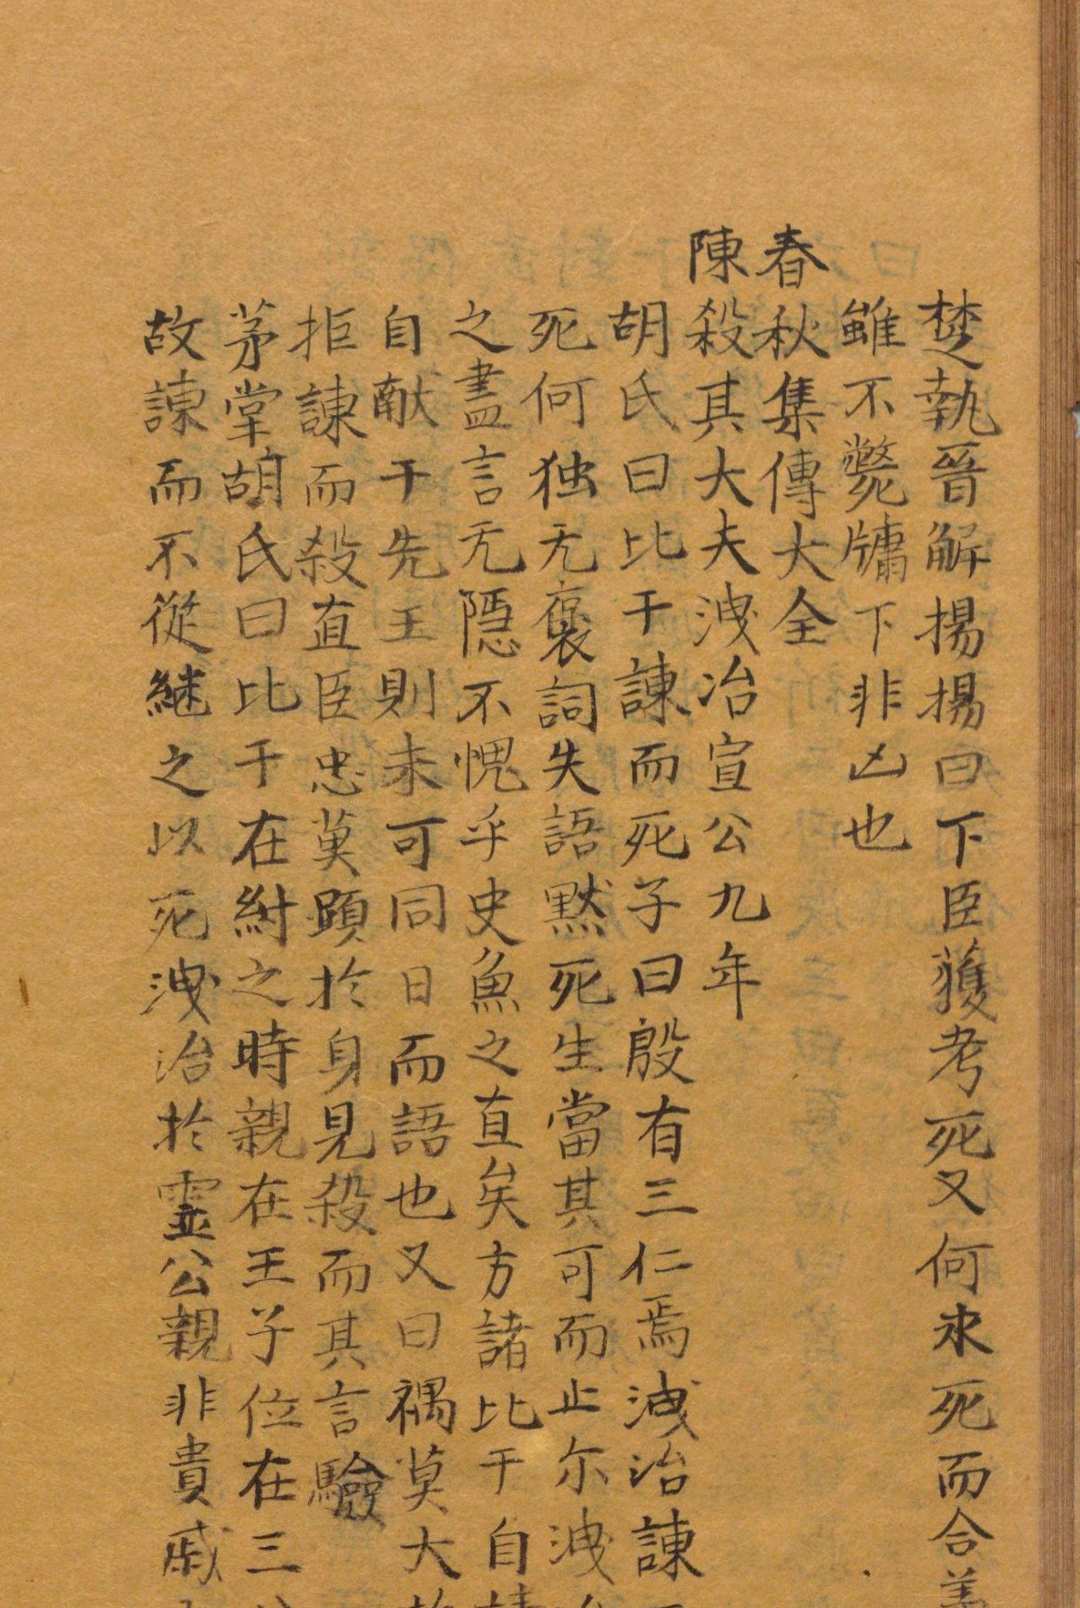 楚執晉解揚揚曰下臣獲考死又何求死而合義
雖不斃牖下非凶也
春秋集傳大全
陳殺其大夫洩冶宣公九年
胡氏曰比干諫而死子曰殷有三仁焉洩冶諫而
死何独无褒詞失語黙死生當其可而止尔洩冶
之盡言无隱不愧乎史魚之直矣方諸比干自靖
自献于先王則未可同日而語也又曰禍莫大於
拒諫而殺直臣忠莫顕於身見殺而其言驗
茅堂胡氏曰比干在紂之時親在王子位在三公
故諫而不從継之以死洩冶於霊公親非貴戚